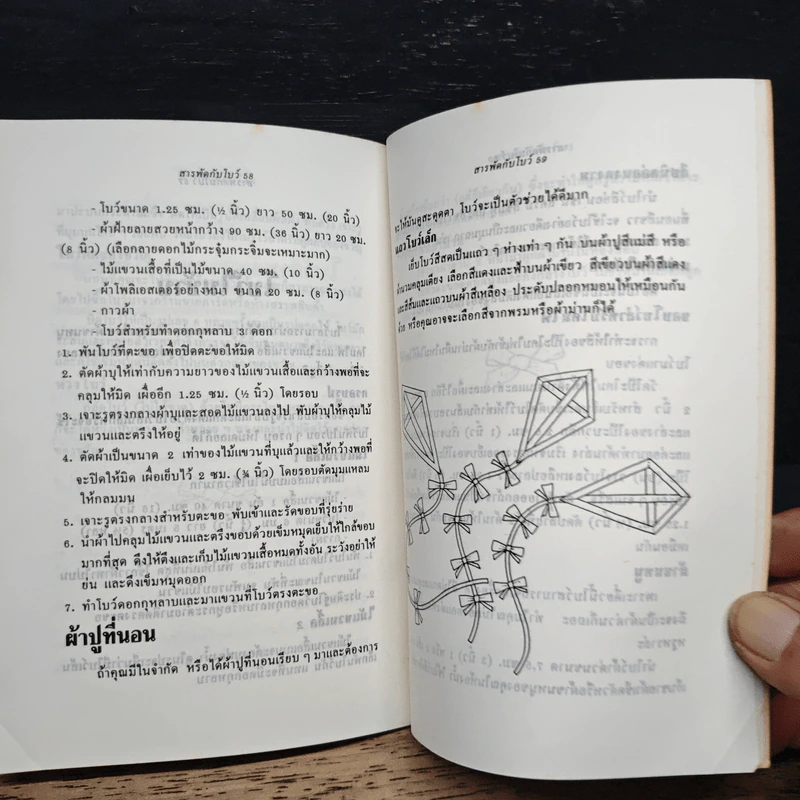 สารพัดกับโบว์ 58
- โบว์ขนาด 1.25 ซม. (½ นิ้ว) ยาว 50 ซม. (20 นิ้ว)
- ผ้าฝ้ายลายสวยหน้ากว้าง 90 ซม. (36 นิ้ว) ยาว 20 ซม.
(8 นิ้ว) (เลือกลายดอกไม้กระจุ๋มกระจิ๋มจะเหมาะมาก)
- ไม้แขวนเสื้อที่เป็นไม้ขนาด 40 ซม. (10 นิ้ว)
- ผ้าโพลีเอสเตอร์อย่างหนา ขนาด 20 ซม. (8 นิ้ว)
- กาวผ้า
- โบว์สำหรับทำดอกกุหลาบ 3 ดอก
1. พันโบว์ที่ตะขอ เพื่อปิดตะขอให้มิด
2. ตัดผ้าบุให้เท่ากับความยาวของไม้แขวนเสื้อและกว้างพอที่จะ
คลุมให้มิด เผื่ออีก 1.25 ซม. (½ นิ้ว) โดยรอบ
3. เจาะรูตรงกลางผ้าบุและสอดไม้แขวนลงไป พับผ้าบุให้คลุมไม้
แขวนและตรึงให้อยู่
4. ตัดผ้าเป็นขนาด 2 เท่าของไม้แขวนที่บุแล้วและให้กว้างพอที่
จะปิดให้มิด เผื่อเย็บไว้ 2 ซม. (¾ นิ้ว) โดยรอบตัดมุมแหลม
ให้กลมมน
5. เจาะรูตรงกลางสำหรับตะขอ พับเข้าและรัดขอบที่รุ่ยร่าย
6. นำผ้าไปคลุมไม้แขวนและตรึงขอบด้วยเข็มหมุดเย็บให้ใกล้ขอบ
มากที่สุด ดึงให้ตึงและเก็บไม้แขวนเสื้อหมดทั้งอัน ระวังอย่าให้
ย่น และดึงเข็มหมุดออก
7. ทำโบว์ดอกกุหลาบและมาแขวนที่โบว์ตรงตะขอ
ผ้าปูที่นอน
ถ้าคุณมีในจำกัด หรือได้ผ้าปูที่นอนเรียบ ๆ มาและต้องการ
สารพัดกับโบว์ 59
จะให้มันดูสะดุดตา โบว์จะเป็นตัวช่วยได้ดีมาก
แถวโบว์เล็ก
เย็บโบว์สีสดเป็นแถว ๆ ห่างเท่า ๆ กัน บนผ้าปูสีแม่สี หรือ
ผ้านวมคลุมเตียง เลือกสีแดงและฟ้าบนผ้าเขียว สีเขียวบนผ้าสีแดง
และสีส้มและแถวบนผ้าสีเหลือง ประดับปลอกหมอนให้เหมือนกัน
ด้วย หรือคุณอาจจะเลือกสีจากพรมหรือผ้าม่านก็ได้